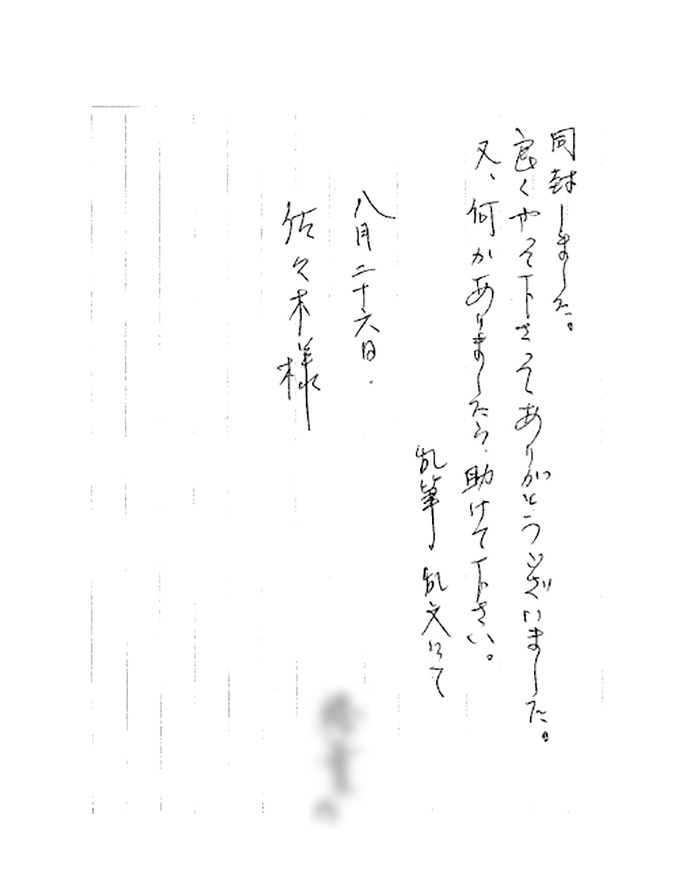 同封しました。
良くやって下さってありがとうございました。
又、何かありましたら、助けて下さい。
乱筆乱文にて
八月二十六日.
佐々木様